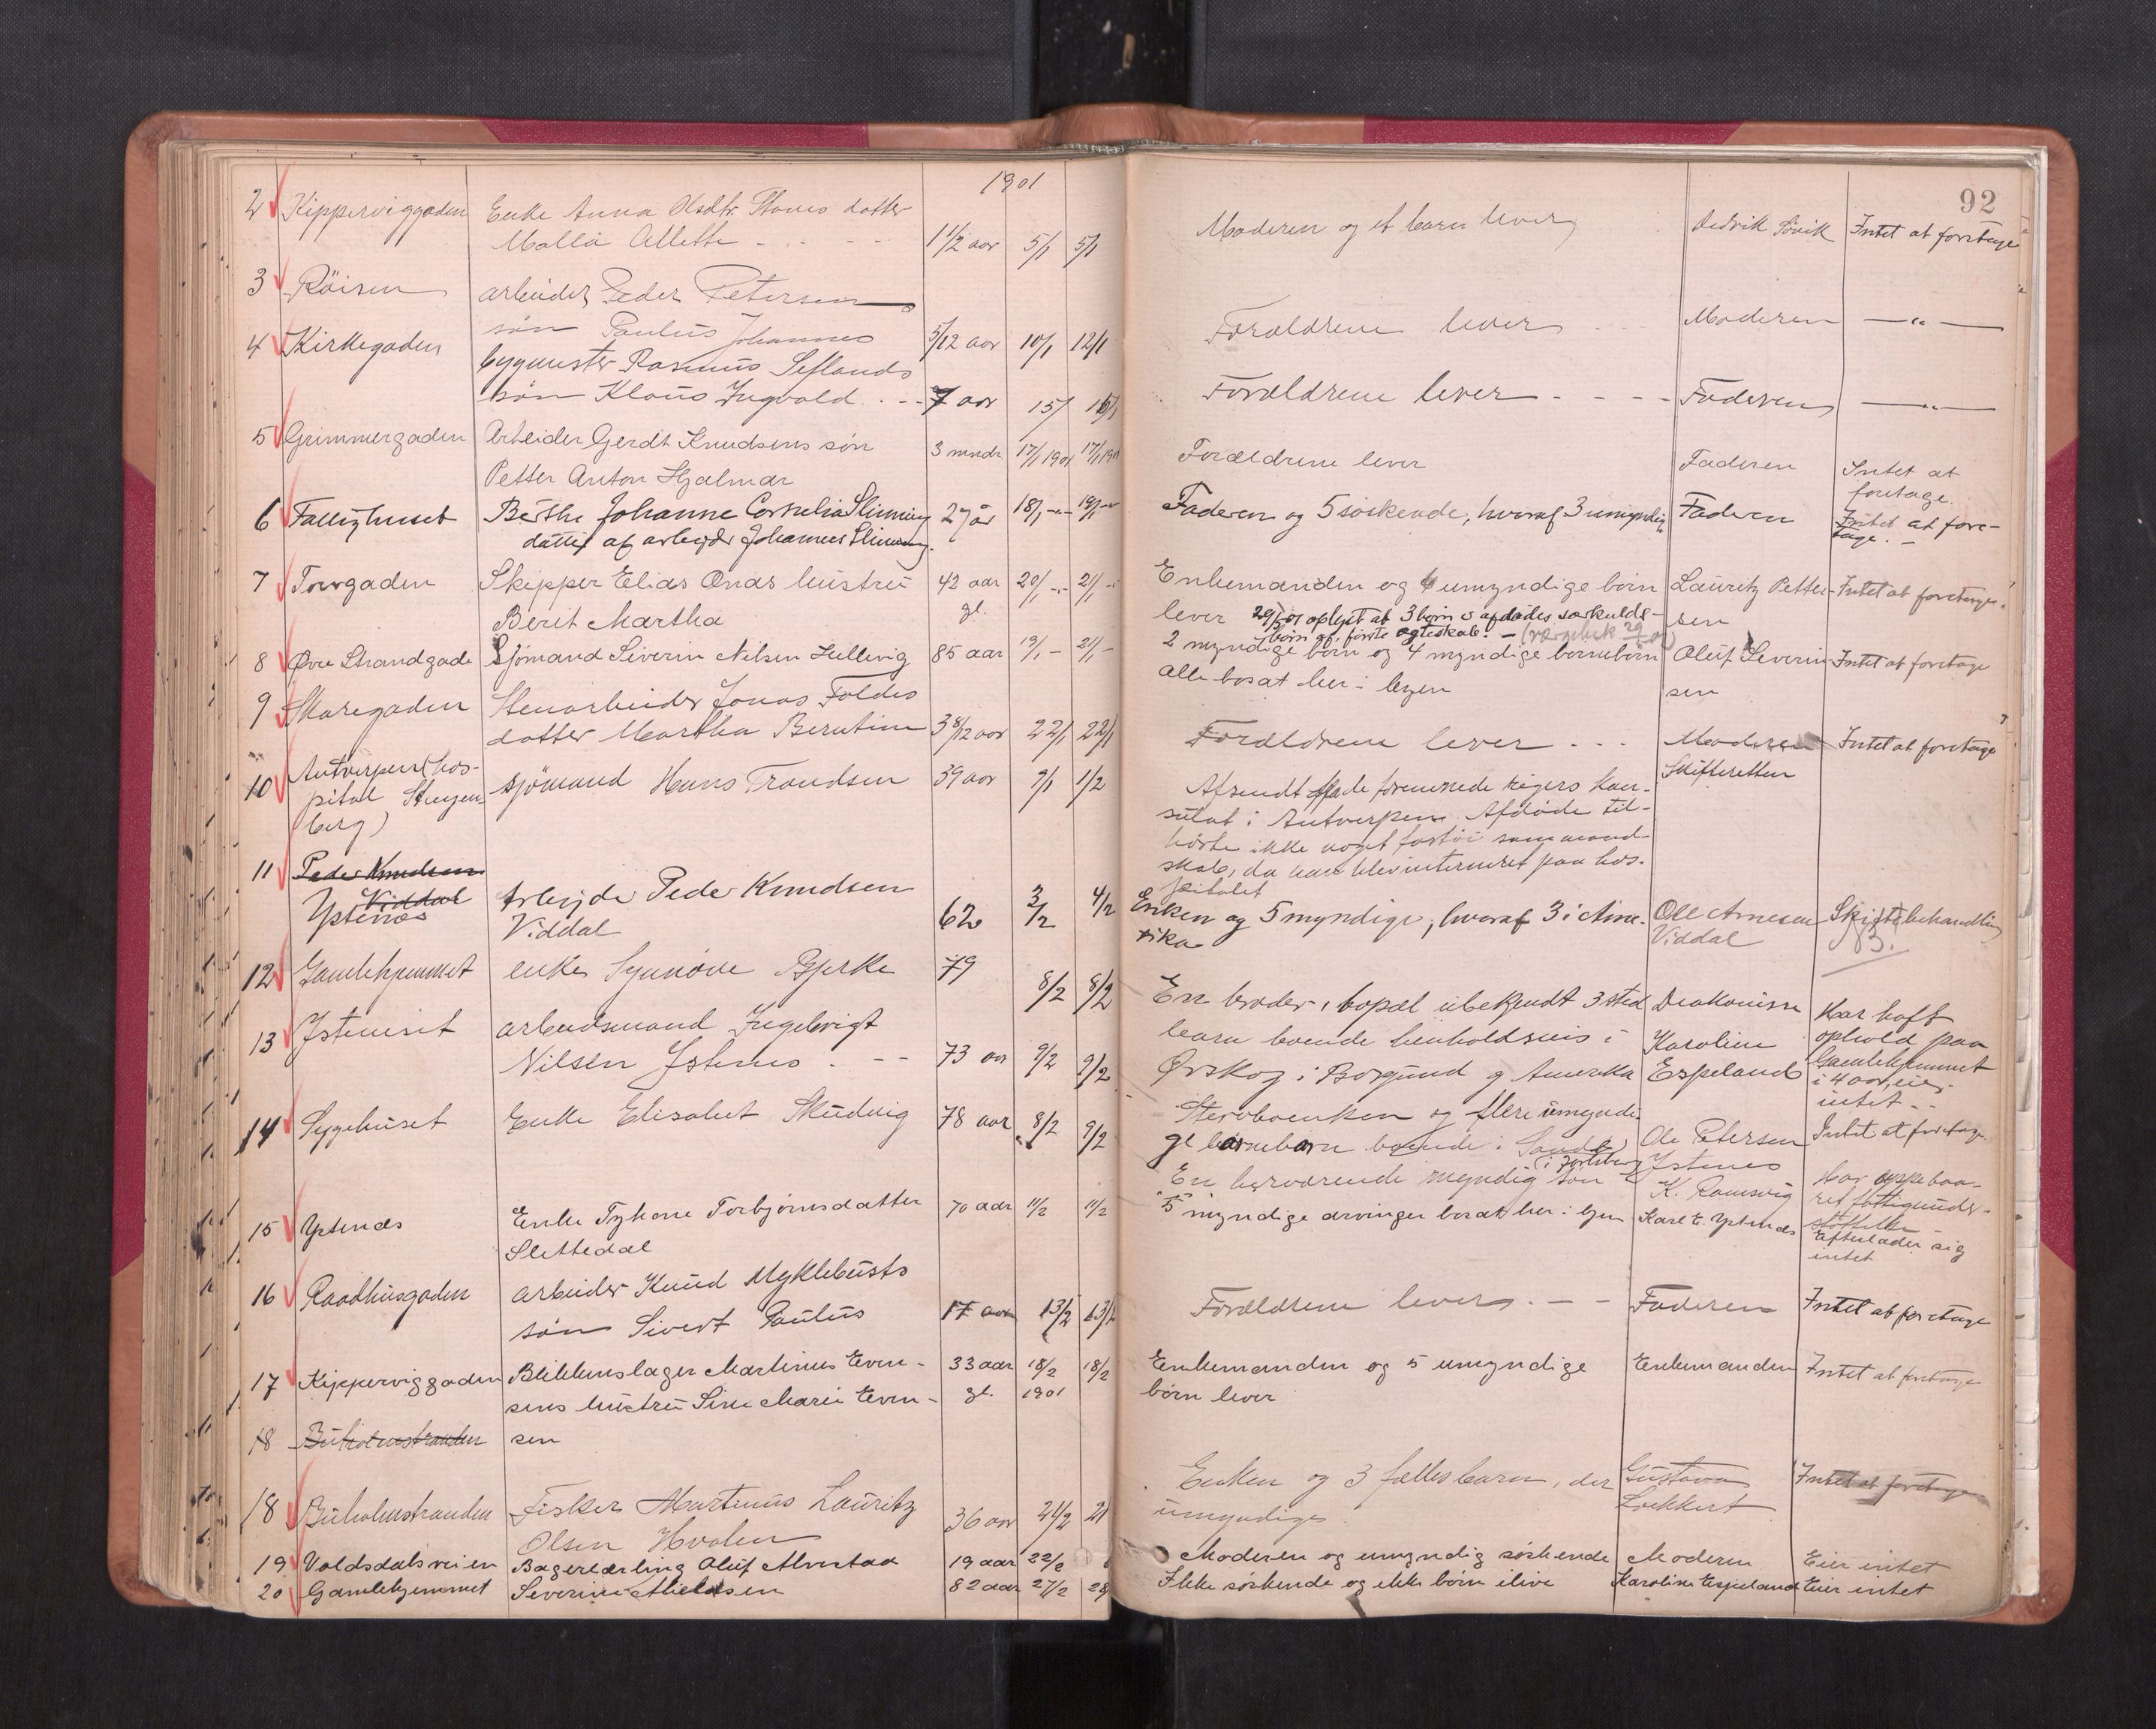 1901
92
2 Kipperviggaden Enke Anna Olsdtr. datter Moderen og et barn lever Didrik Søvik Intet at foretage
Malla Allette - - - - 1 1/2 aar 5/1 5/1
3 Röisen arbeider Peder Petersen
søn Paulus Johannes 5/12 aar 10/1 12/1 Forældrene lever Moderen —"—
4 Kirkegaden bygmester Rasmus Seflands
søn Klaus Ingvald . - - 7 aar 15/ 16/1 Forældrene lever - - - - Faderen —"—
5 Grimmergaden Arbeider Gerdt Knudsens søn 3 mndr 17/1 1901 17/1 1901 Forældrene lever Faderen Intet at
Petter Anton Hjalmar foretage.
6 Fattighuset Berthe Johanne Cornelia Slinning 27 år 18/1 -"- 19/1 -"- Faderen og 5 søskende, hvoraf 3 umyndig Faderen Intet at fore-
datter af arbejder Johannes Slinning. tage. -
7 Torvgaden Skipper Elias Onas hustru 42 aar 20/1 -"- 21/1 -"- Enkemanden og 4 umyndige børn Lauritz Petter- Intet at foretage.
Berit Martha gl. lever 29/1 01 oplyst at 3 børn afdødes særkulds- sen
børn af første ægteskab. -
8 Øvre Strandgade Sjømand Siverin Nilsen Hellevig 85 aar 19/1 - 21/1 - 2 myndige børn og 4 myndige børnebørn Oluf Severin- Intet at foretage
alle bosat her i byen sen
9 Skaregaden Stenarbeider Jonas Foldes
datter Martha Berntine 3 8/12 aar 22/1 22/1 Forældrene lever . . . Moderen Intet at foretage
Skifteretten
10 Antwerpen (hos- sjömand Hans Trondsen 39 aar 9/1 1/2 Afsendt de forenede rigers kon-
pital Stuyen- sulat i Antverpen. Afdøde til-
berg) hørte ikke noget fartöi som mand-
skab, da han blev interneret paa hos-
pitalet
11 Peder Knudsen
Viddal
Ystenæs Arbejder Peder Knudsen 62 3/2 4/2 Enken og 5 myndige, hvoraf 3 i Ame- Ole Arnesen Skiftebehandling
Viddal rika Viddal
12 Gamlehjemmet enke Synnøve Bjerke 79 8/2 8/2 En broder, bopæl ubekjendt 3 sted Diakonisse Har haft
13 Istenæset arbeidsmand Ingebrigt barn boende henholdsvis i Karoline ophold paa
Nilsen Istenes . - - 73 aar 9/2 9/2 Ørskog i Borgund og Amerika Espeland Gamlehjemmet
i 4 aar, eier
intet - -
14 Sygehuset Enke Elisabet Skudvig 78 aar 8/2 9/2 Stervboenken og flere umyndi- Ole Petersen Intet at foretage
ge børnebørn boende i Istenes
En herværende myndig søn K. Ramsvig Har oppebaa-
15 Ystenæs Enke Tykone Torbjørnsdatter 70 aar 11/2 11/2 5 myndige arvinger bosat her i byen Karl E. Ystenæs ret fattigunder-
Slettedal støttelse
Efterlader sig
intet
16 Raadhusgaden arbeider Knud Myklebusts
søn Sivert Paulus 17 aar 13/2 13/2 Forældrene lever. - - Faderen Intet at foretage
17 Kipperviggaden Blikkenslager Martinus Even- 33 aar 18/2 18/2 Enkemanden og 5 umyndige Enkemanden Intet at foretage
sens hustru Sine Marie Even- gl. 1901 børn lever
18 Buholmstranden sen
18 Buholmstranden Fisker Martinus Lauritz 36 aar 21/2 21 Enken og 3 fælles barn, der Gustava Intet at foretage
Olsen Hvalen umyndige. Lockkert
19 Voldsdalsveien Bagerlærling Oluf Alvestad 19 aar 22/2 Moderen og umyndig søskende Moderen Eier intet
20 Gamlehjemmet Severine 82 aar 27/2 28 Ikke søskende og ikke børn ilive Karoline Espeland Eier intet